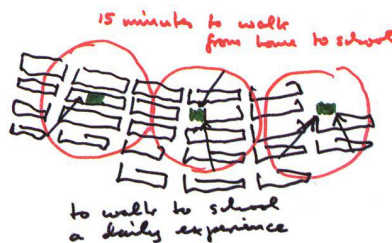 15 minutes to walk
from home to school
to walk to school
a daily experience